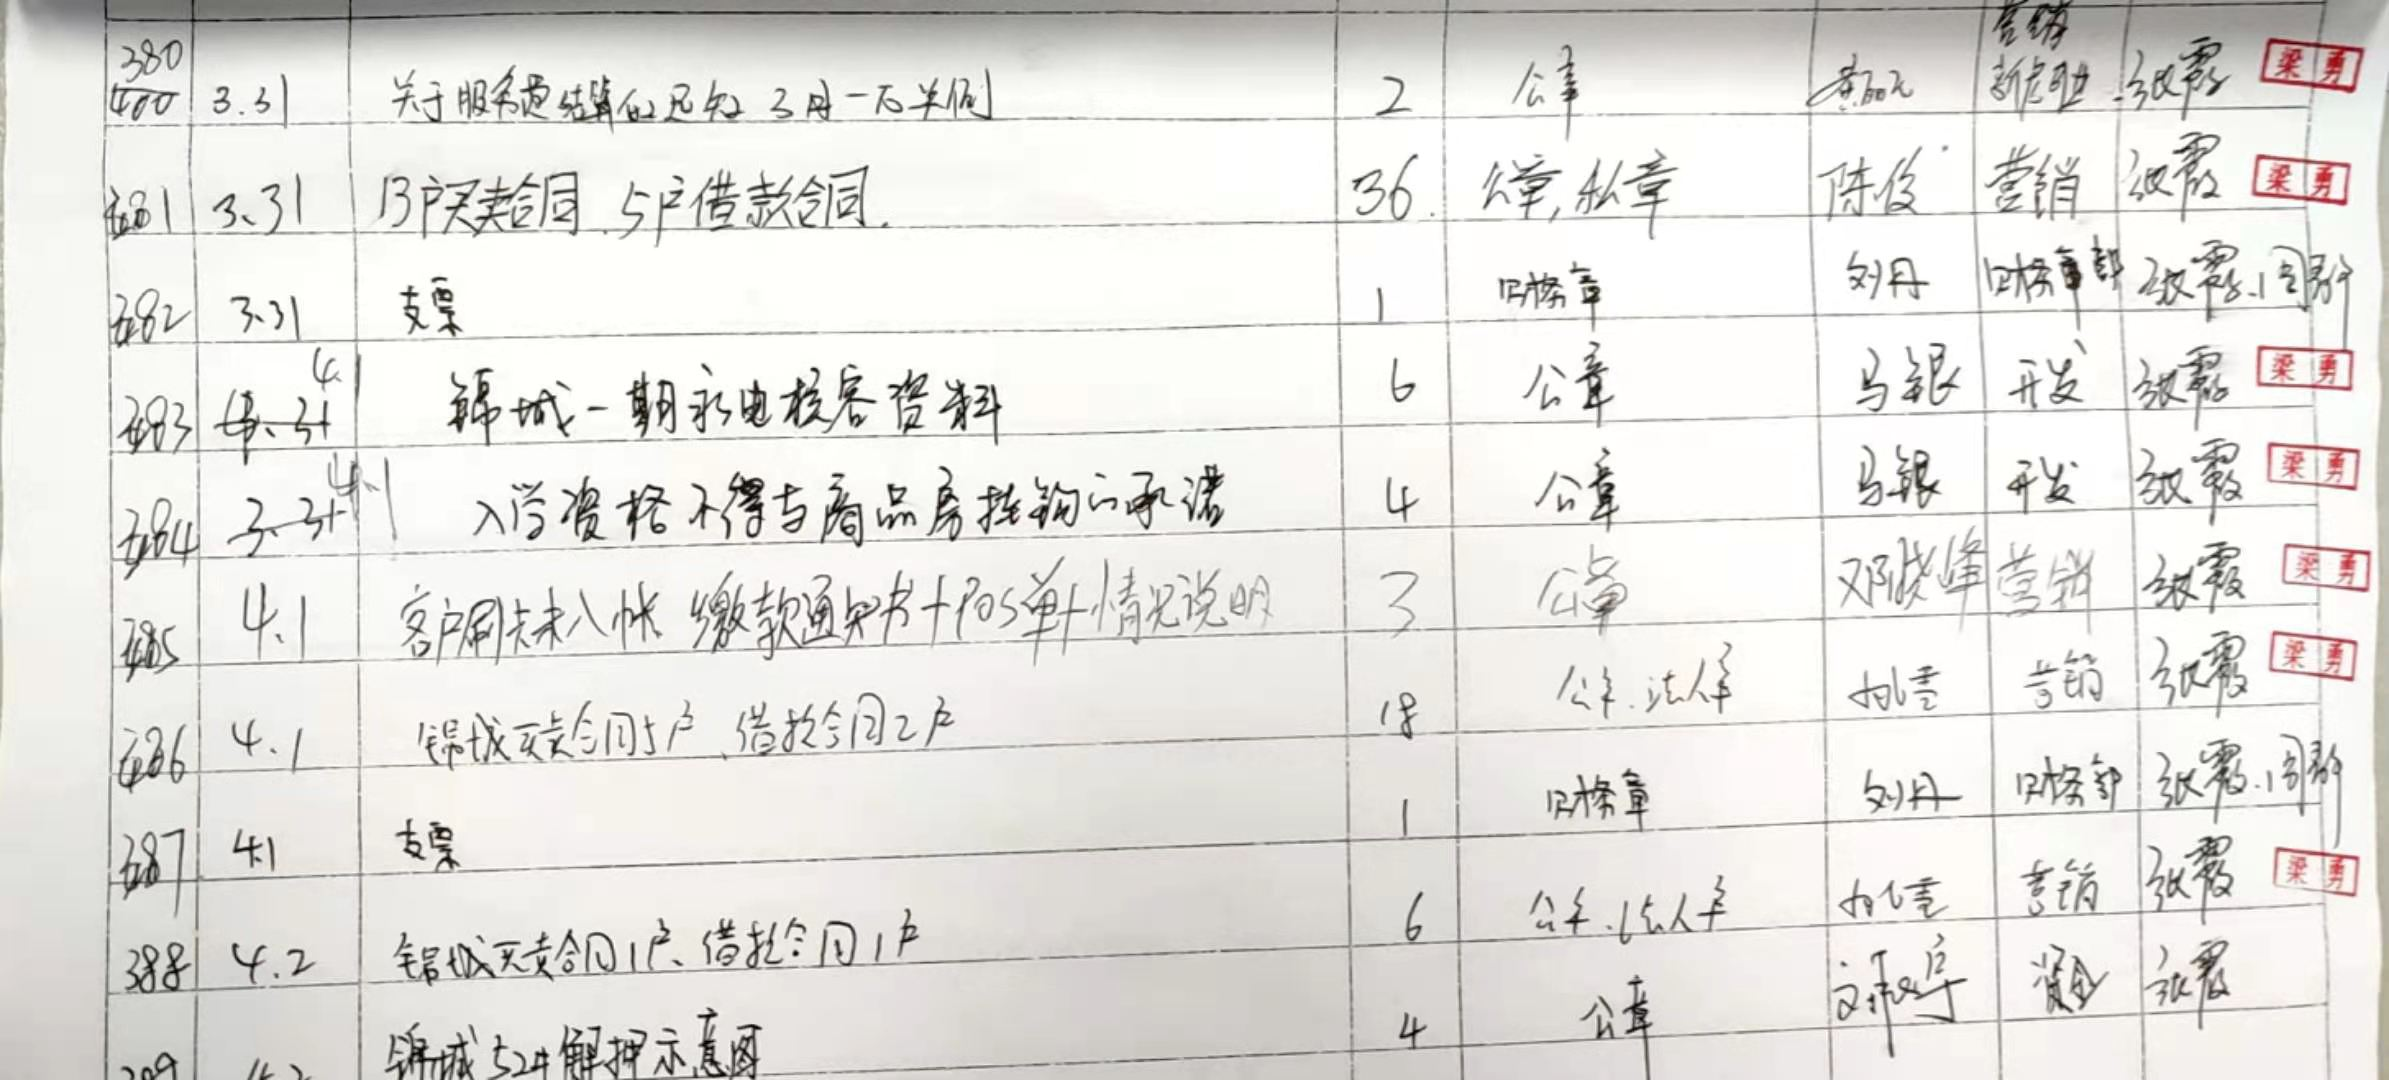 380
400 3.31 关于服务费结算的通知 3月一石半例 2 公章 张霞 梁勇
381 3.31 13户买卖合同、5户借款合同. 36. 公章,私章 陈俊 营销 张霞 梁勇
382 3.31 支票 1 财务章 刘丹 财务部 张霞、周静
383 4.1 锦城一期永电核容资料 6 公章 马银 开发 张霞 梁勇
384 3.31 4.1 入学资格不得与商品房挂钩的承诺 4 公章 马银 开发 张霞 梁勇
385 4.1 客户刷卡未入帐 缴款通知书+POS单+情况说明 3 公章 邓晓峰 营销 张霞 梁勇
386 4.1 锦城买卖合同5户、借款合同2户 18 公章、法人章 营销 张霞 梁勇
387 4.1 支票 1 财务章 刘丹 财务部 张霞、周静
388 4.2 锦城买卖合同1户、借款合同1户 6 公章、法人章 营销 张霞 梁勇
锦城52#解押示意图 4 公章 资金 张霞